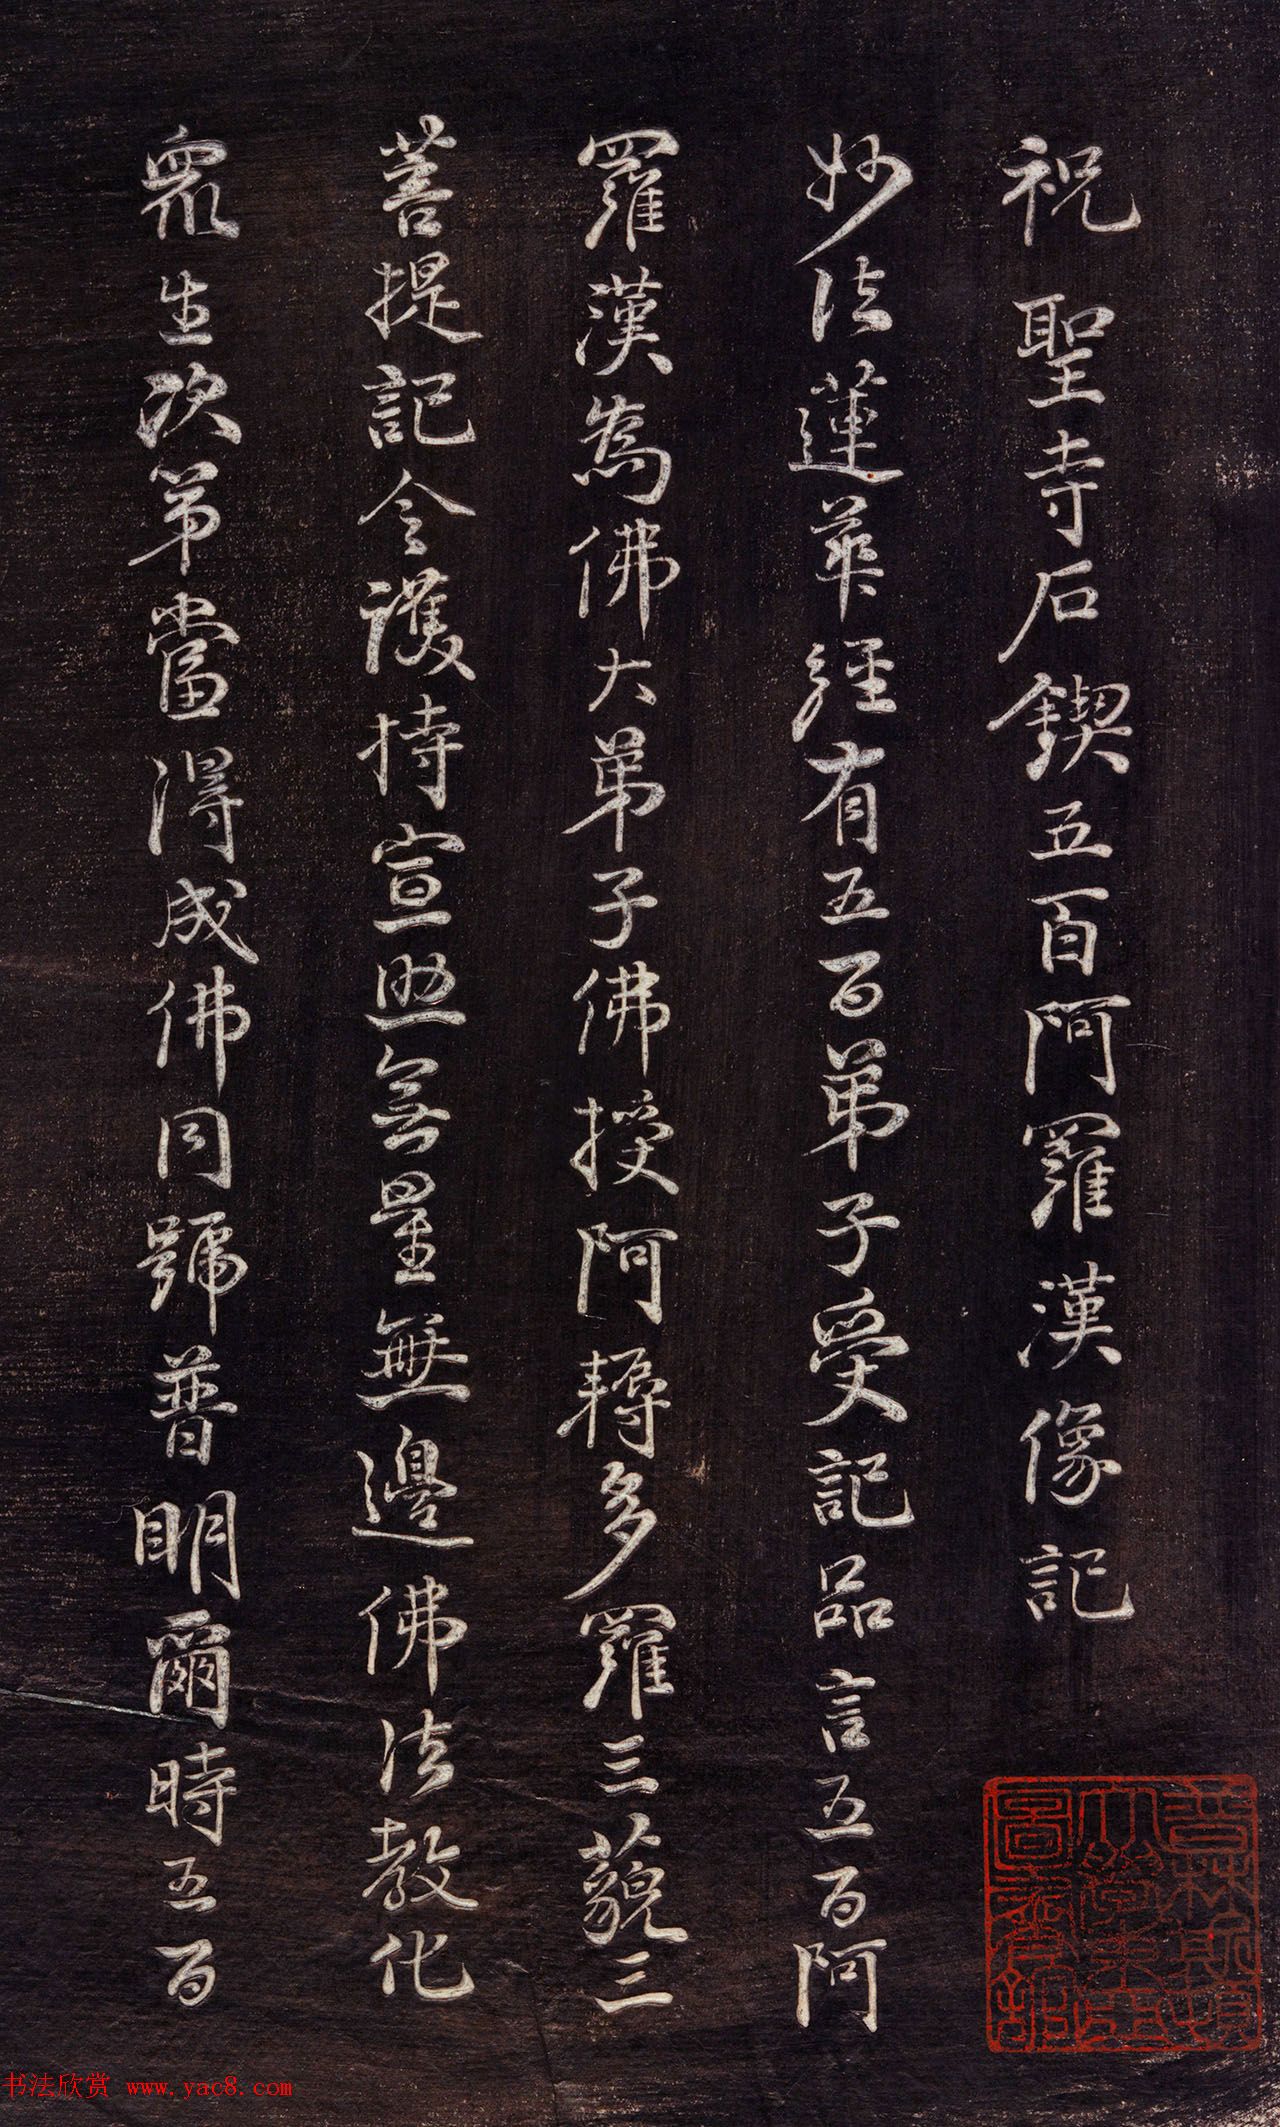 祝聖寺石鍥五百阿羅漢像記
妙法蓮華經有五百弟子受記品言五百阿
羅漢為佛大弟子佛授阿耨多羅三藐三
菩提記令護持宣助無量無邊佛法教化
眾生次第當得成佛同號普明爾時五百
普林斯頓
大學東亞
圖書館
书法欣赏 www.yac8.com